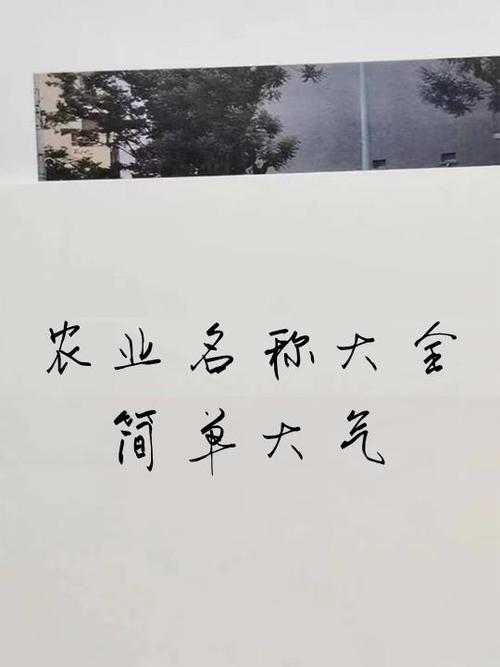 农业名称大全
简单大气